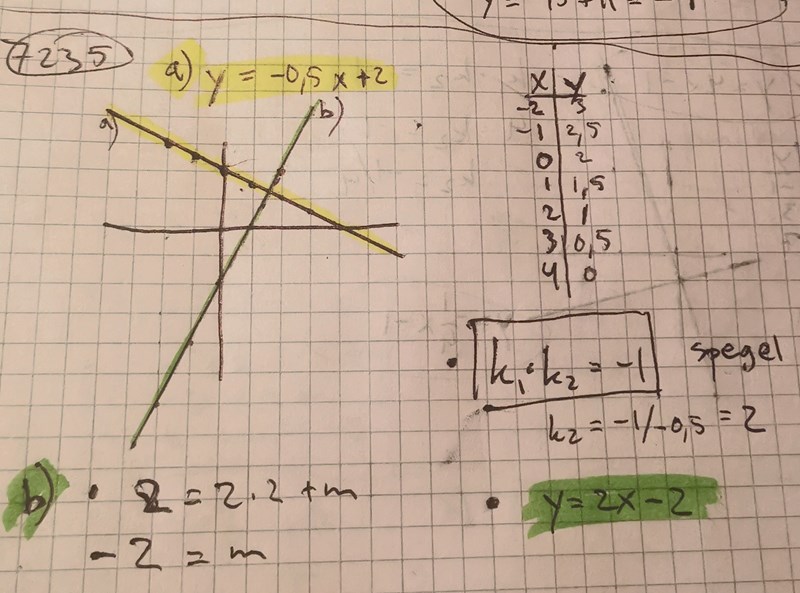 7235
a) y = -0,5x+2
a)
b)
x y
-2 3
-1 2,5
0 2
1 1,5
2 1
3 0,5
4 0
k₁·k₂ = -1
spegel
k2 = -1/-0,5 = 2
b) · 2 = 2·2+m
-2 = m
· y=2x-2